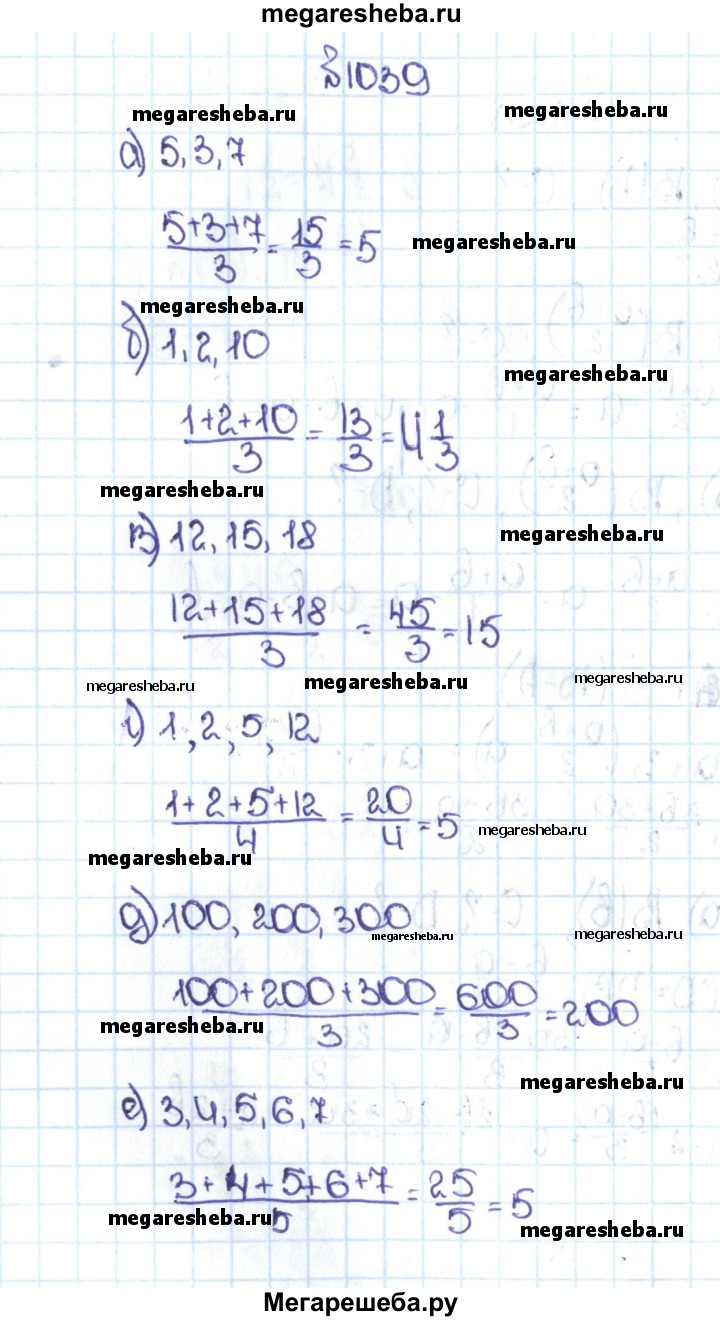 megaresheba.ru
№1039
megaresheba.ru megaresheba.ru
а) 5, 3, 7
(5+3+7)/3 = 15/3 = 5 megaresheba.ru
megaresheba.ru
б) 1, 2, 10
megaresheba.ru
(1+2+10)/3 = 13/3 = 4 1/3
megaresheba.ru
в) 12, 15, 18 megaresheba.ru
(12+15+18)/3 = 45/3 = 15
megaresheba.ru megaresheba.ru megaresheba.ru
г) 1, 2, 5, 12
(1+2+5+12)/4 = 20/4 = 5 megaresheba.ru
megaresheba.ru
д) 100, 200, 300
megaresheba.ru megaresheba.ru
(100+200+300)/3 = 600/3 = 200
megaresheba.ru
megaresheba.ru
е) 3, 4, 5, 6, 7
(3+4+5+6+7)/5 = 25/5 = 5
megaresheba.ru megaresheba.ru
Мегарешеба.ру